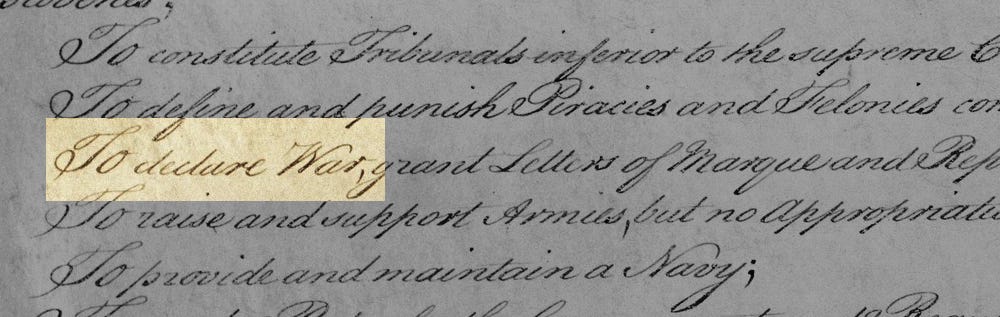 To constitute Tribunals inferior to the supreme
To define and punish Piracies and Felonies
To declare War, grant Letters of Marque and
To raise and support Armies, but no Appropriati
To provide and maintain a Navy;